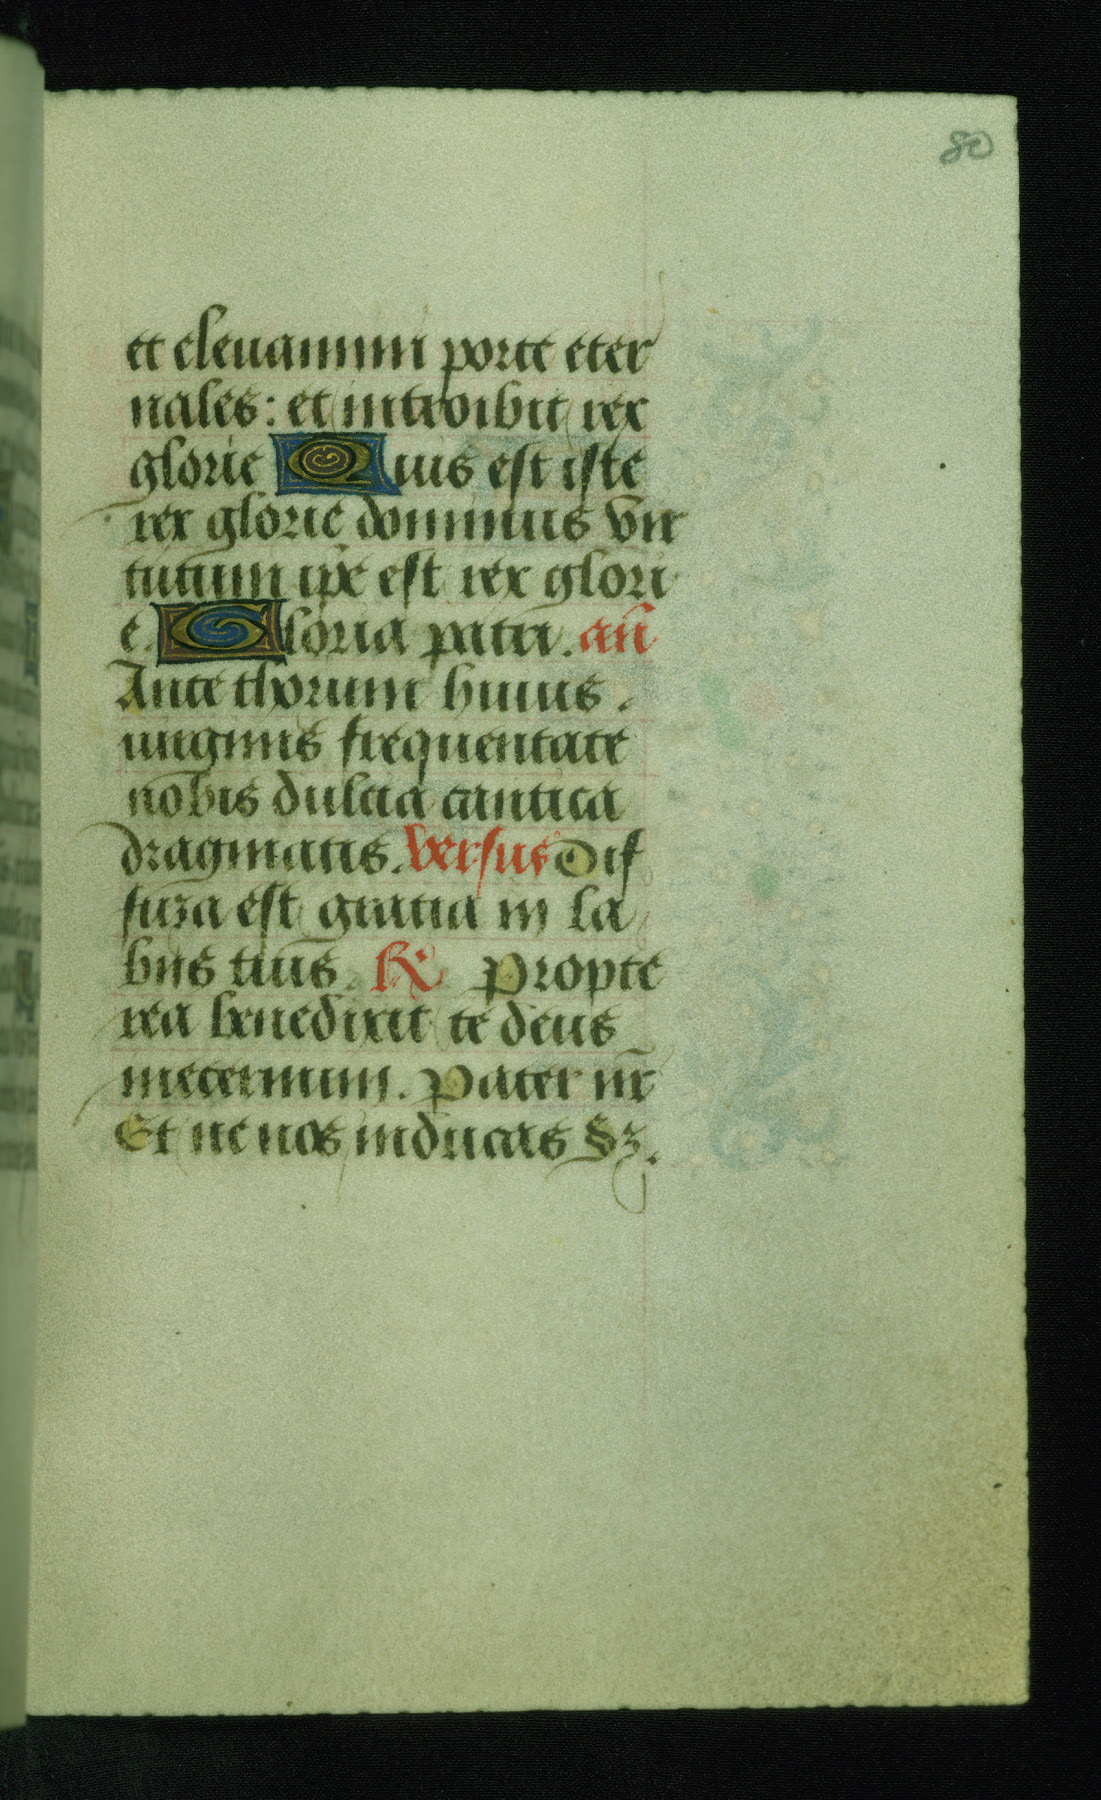 80
et eleuamini porte eter
nales: et introibit rex
glorie Quis est iste
rex glorie dominus vir
tutum ip̄e est rex glori
e. Gloria patri. an̄
Ante thorum huius.
uirginis frequentate
nobis dulcia cantica
dragmatis. versus Dif
fuza est gratia in la
biis tuis. R̷ Propte
rea benedixit te deus
ineternum. Pater nr̄
Et ne nos inducas Sz.